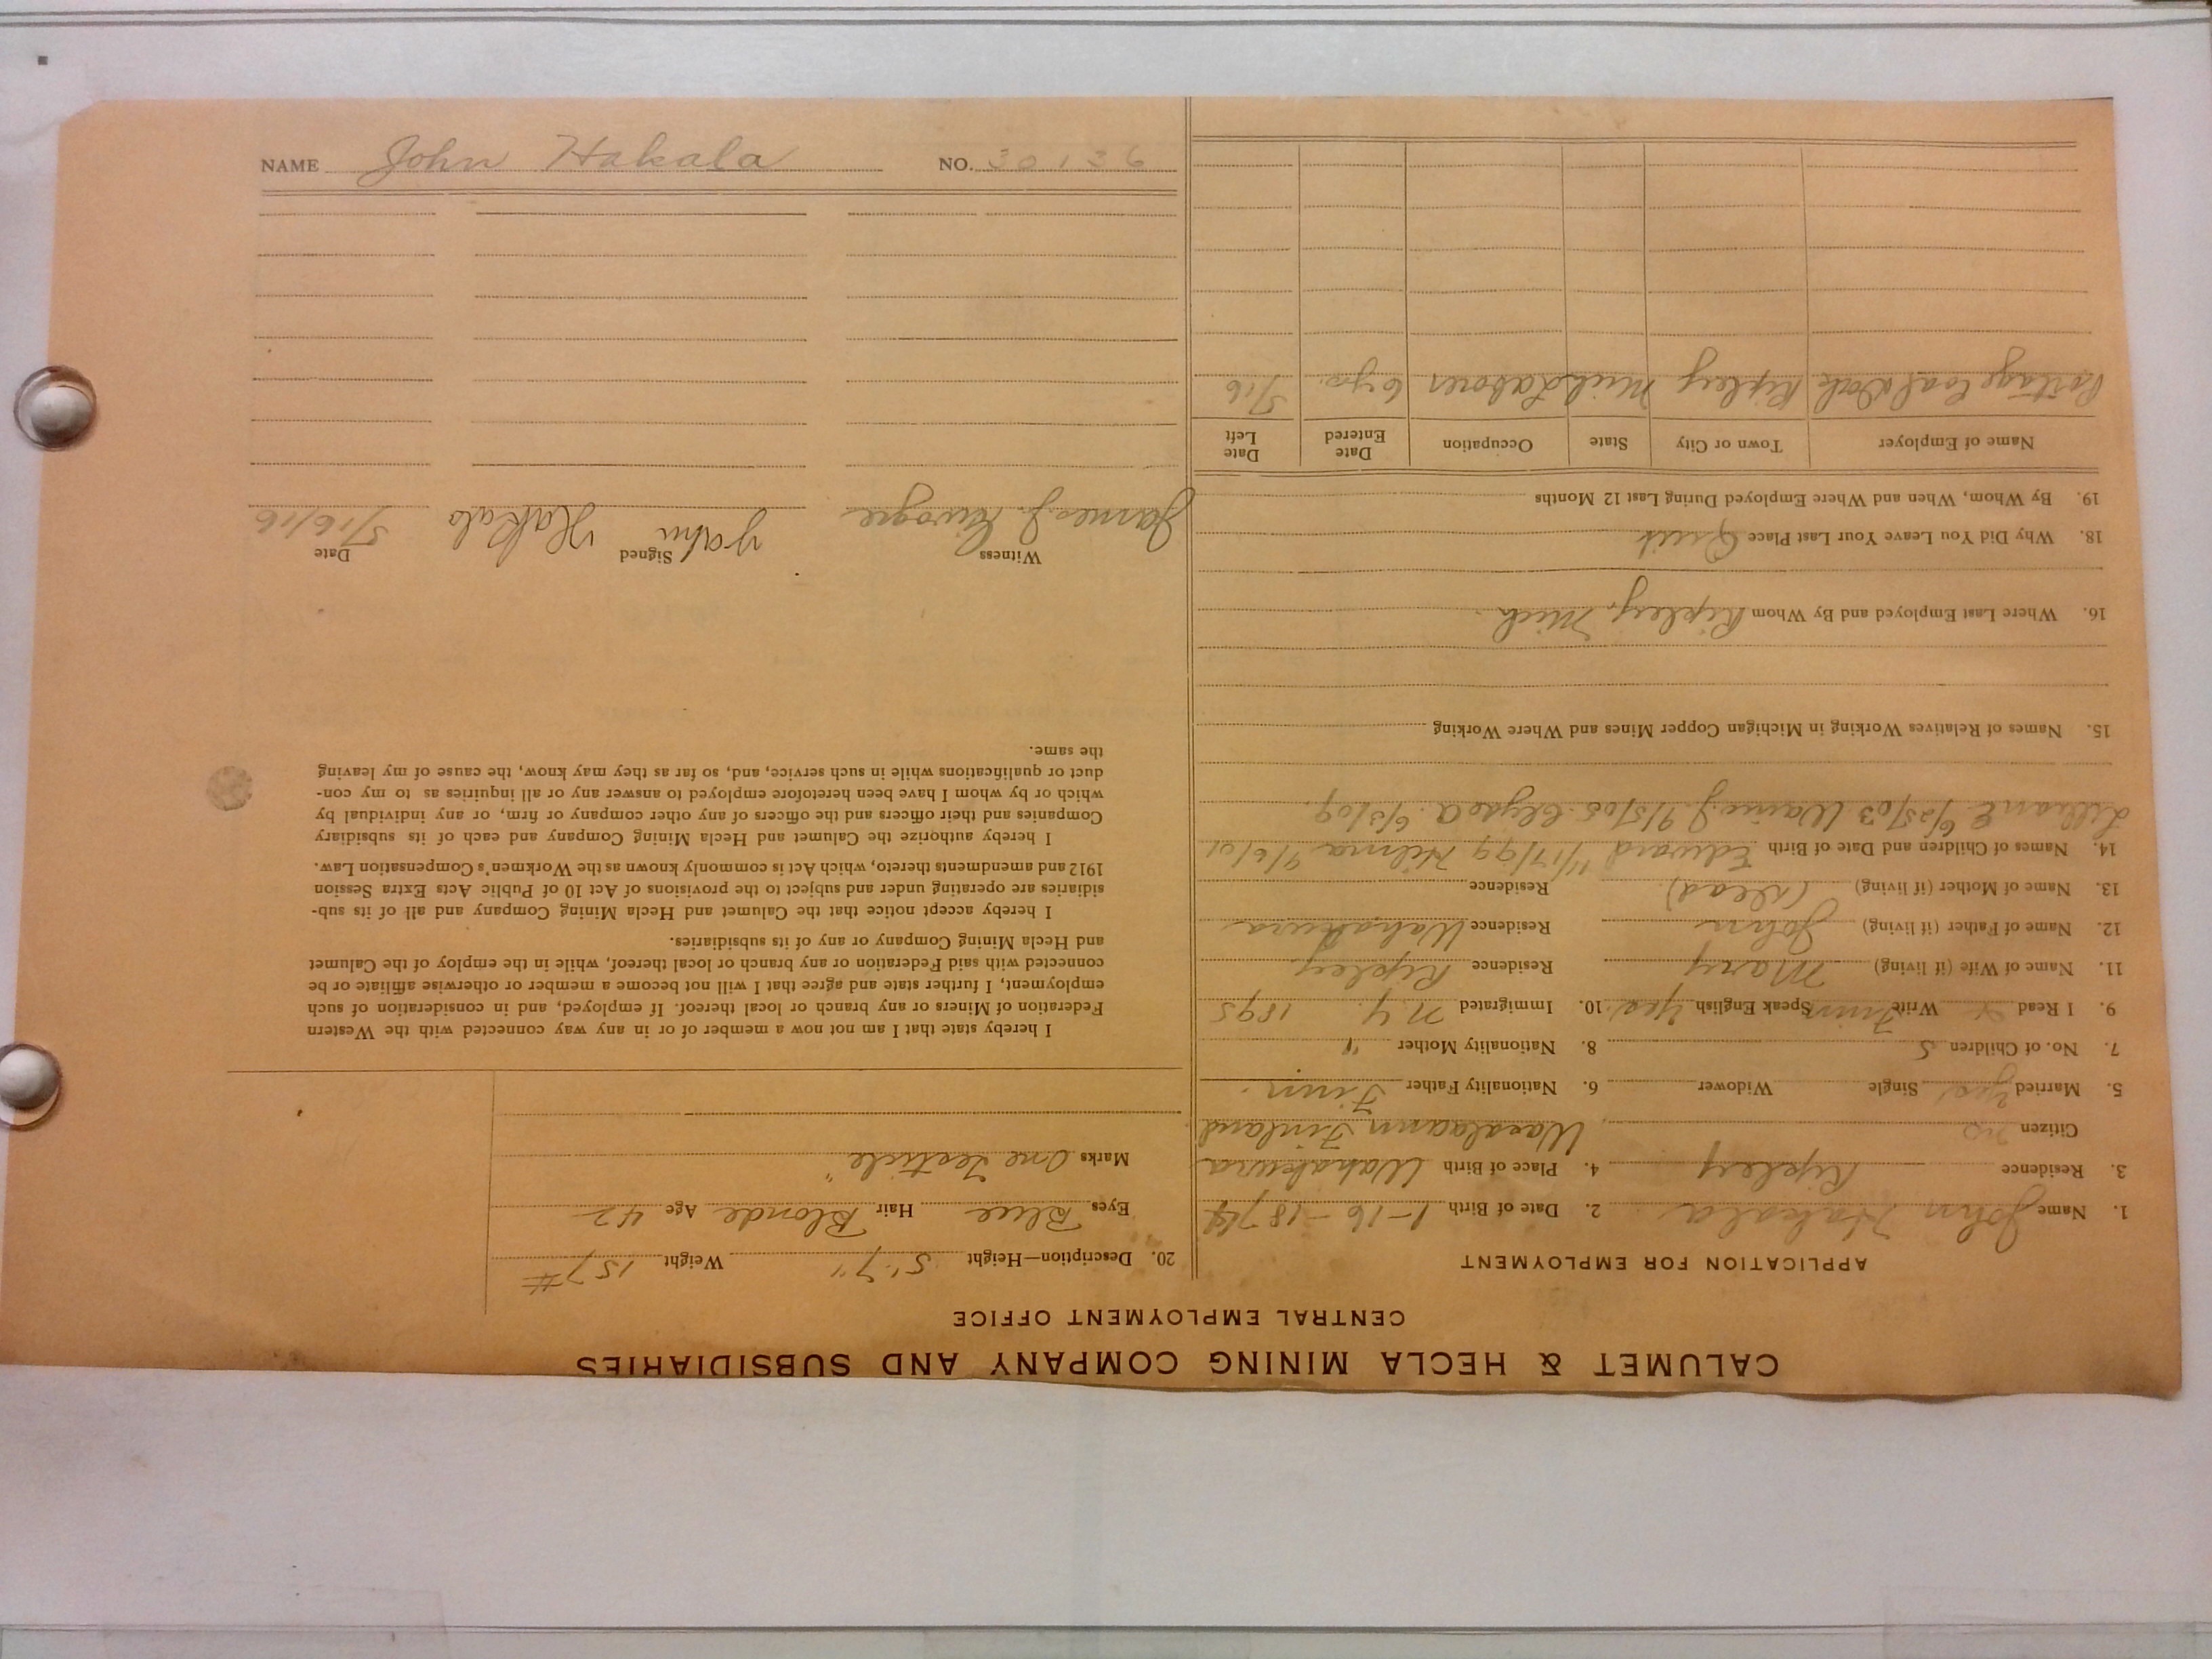 NAME John Hakala NO. 30136
CALUMET & HECLA MINING COMPANY AND SUBSIDIARIES
CENTRAL EMPLOYMENT OFFICE
APPLICATION FOR EMPLOYMENT
1. Name John Hakala 2. Date of Birth 1-16-1874
3. Residence Ripley 4. Place of Birth
Citizen no Finland
5. Married yes Single Widower 6. Nationality Father Finn.
7. No. of Children 5 8. Nationality Mother "
9. I Read Write Finn Speak English Yes. 10. Immigrated N.Y. 1895
11. Name of Wife (if living) Mary Residence Ripley.
12. Name of Father (if living) John Residence
13. Name of Mother (if living) (dead) Residence
14. Names of Children and Date of Birth Edward 11/17/99 Hilma 9/6/01
6/25/03 9/5/05. Clyde A. 6/3/09.
15. Names of Relatives Working in Michigan Copper Mines and Where Working
16. Where Last Employed and By Whom Ripley, Mich.
18. Why Did You Leave Your Last Place Quit
19. By Whom, When and Where Employed During Last 12 Months
Name of Employer Town or City State Occupation Date Entered Date Left
Portage Coal Dock Ripley Mich Laborer 6 yrs. 5/16
20. Description—Height 5'7" Weight 157#
Eyes Blue Hair Blonde Age 42
Marks One Testicle"
I hereby state that I am not now a member of or in any way connected with the Western
Federation of Miners or any branch or local thereof. If employed, and in consideration of such
employment, I further state and agree that I will not become a member or otherwise affiliate or be
connected with said Federation or any branch or local thereof, while in the employ of the Calumet
and Hecla Mining Company or any of its subsidiaries.
I hereby accept notice that the Calumet and Hecla Mining Company and all of its sub-
sidiaries are operating under and subject to the provisions of Act 10 of Public Acts Extra Session
1912 and amendments thereto, which Act is commonly known as the Workmen's Compensation Law.
I hereby authorize the Calumet and Hecla Mining Company and each of its subsidiary
Companies and their officers and the officers of any other company or firm, or any individual by
which or by whom I have been heretofore employed to answer any or all inquiries as to my con-
duct or qualifications while in such service, and, so far as they may know, the cause of my leaving
the same.
Witness Signed Date
James J. John Hakala 5/16/16